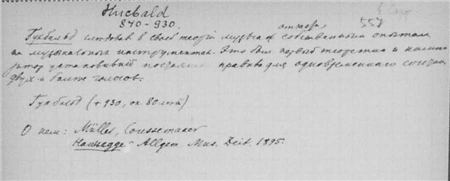 Hucbald
840-930.
557
Гукбальд следовал в своей теории музыки собственным опытам
на музыкальном инструменте. Это был первый теоретик и
установивший правила для одновременного
двух и более голосов.
Гукбальд († 930, ок. 80 лет)
О нем: Müller, Coussemaker
Hausegger - Allgem Mus. Zeit. 1895.